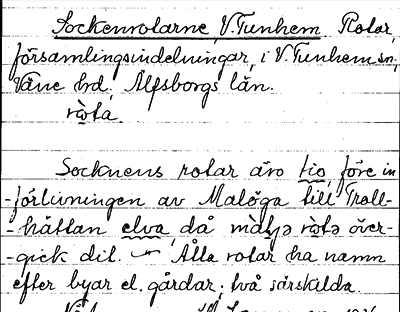 Sockenrotarne, V. Tunhem. Rotar,
församlingsindelningar, i V. Tunhem sn,
Väne hd. Älfsborgs län.
ròta.
Socknens rotar äro tio, före in
-förlivningen av Malöga till Troll-
-hättan elva, då màləə ròtə över-
-gick dit. — Alla rotar ha namn
efter byar el. gårdar; två särskilda